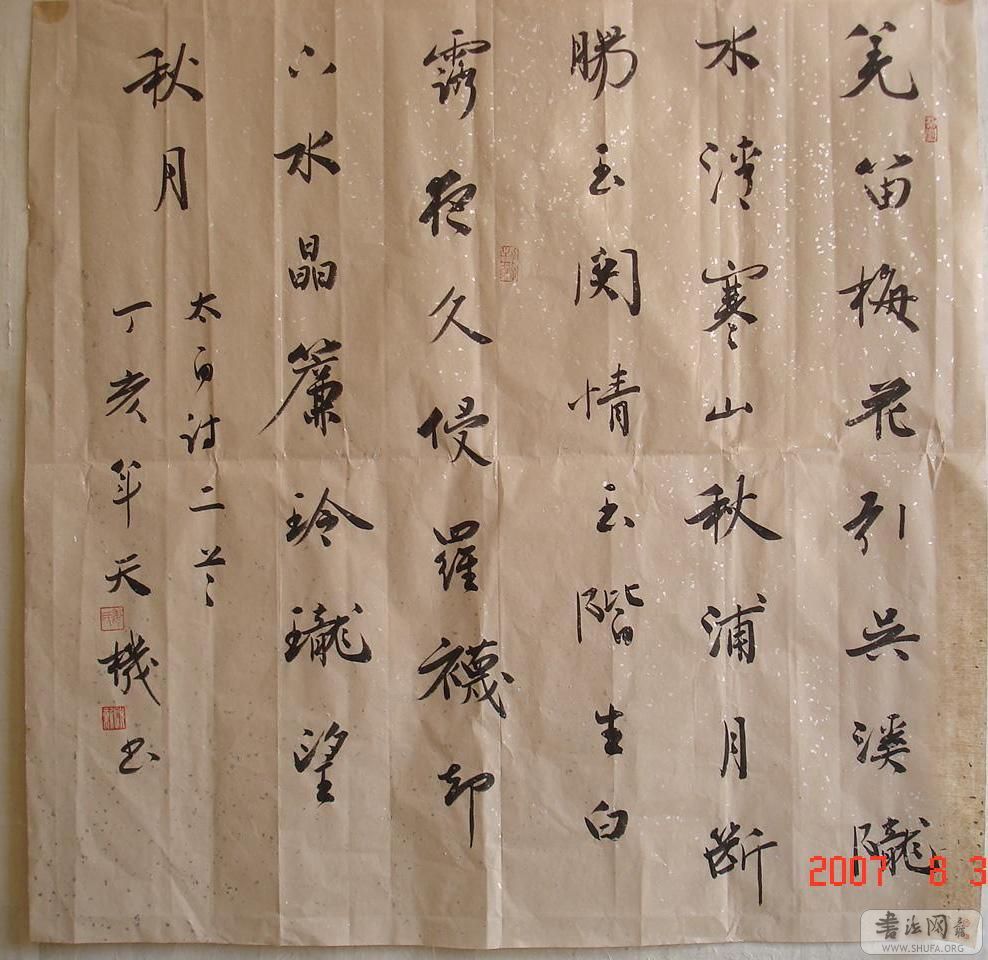 羌笛梅花引吴溪隴
水清寒山秋浦月断
腸玉関情玉階生白
露夜久侵羅襪却
下水晶簾玲瓏望
秋月
太白诗二首
丁亥年天機书
2007 8 3
書法网
WWW.SHUFA.ORG